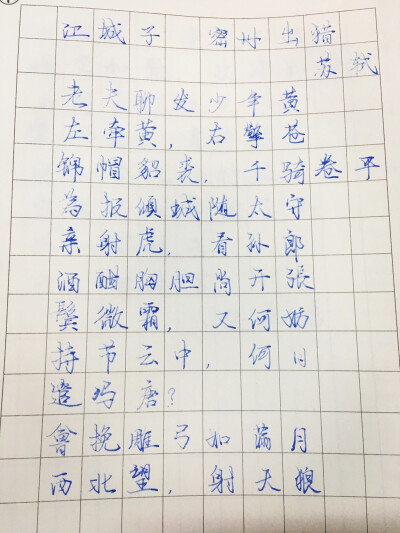 江城子 密州出猎
苏轼
老夫聊发少年黄
左牵黄，右擎苍
锦帽貂裘，千骑卷平
為报倾城随太守
亲射虎，看孙郎
酒酣胸胆尚开張
鬓微霜，又何妨
持节云中，何日
遣冯唐？
會挽雕弓如满月
西北望，射天狼